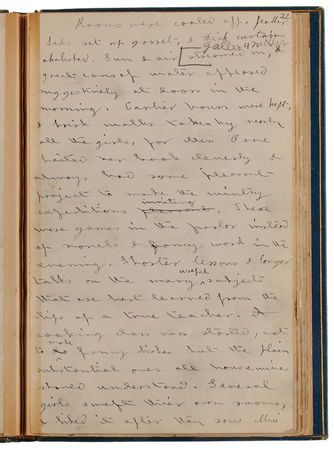 21
Rooms were cooled off, feather
beds set up garret, & thick curtains
abolished. Sun & air streamed in, &
great cans of water appeared
suggestively at doors in the
morning. Earlier hours were kept,
& brisk walks taken by nearly
all the girls, for Miss Orne
baited her hook cleverly &
always had some pleasant
project to make the wintry
inviting
expeditions pleasant. There
were games in the parlor instead
of novels & fancy work in the
evening. Shorter lessons & longer
useful
talks on the many subjects
that are best learned from the
lips of a true teacher. A
cooking class was started, not
make
to do fancy dishes but the plain
substantial ones all housewives
should understand. Several
girls swept their own rooms,
& liked it after they saw Miss